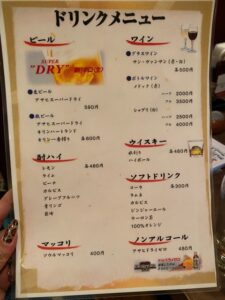 ドリンクメニュー
ビール
SUPER
"DRY"
●生ビール
アサヒスーパードライ
590円
●瓶ビール
アサヒスーパードライ
キリンハートランド
キリン一番搾り 各600円
酎ハイ
各460円
レモン
ライム
ピーチ
カルピス
グレープフルーツ
青リンゴ
マッコリ
ソウルマッコリ 400円
ワイン
●グラスワイン
サン・ヴァンサン(赤・白)
各500円
●ボトルワイン
メドック(赤)
ハーフ 2000円
フル 3500円
シャブリ(白)
ハーフ 2500円
フル 4000円
ウイスキー
水割り 各460円
ハイボール
ソフトドリンク
コーラ 各300円
ラムネ
カルピス
ジンジャーエール
ウーロン茶
100%オレンジ
ノンアルコール
アサヒドライゼロ 480円